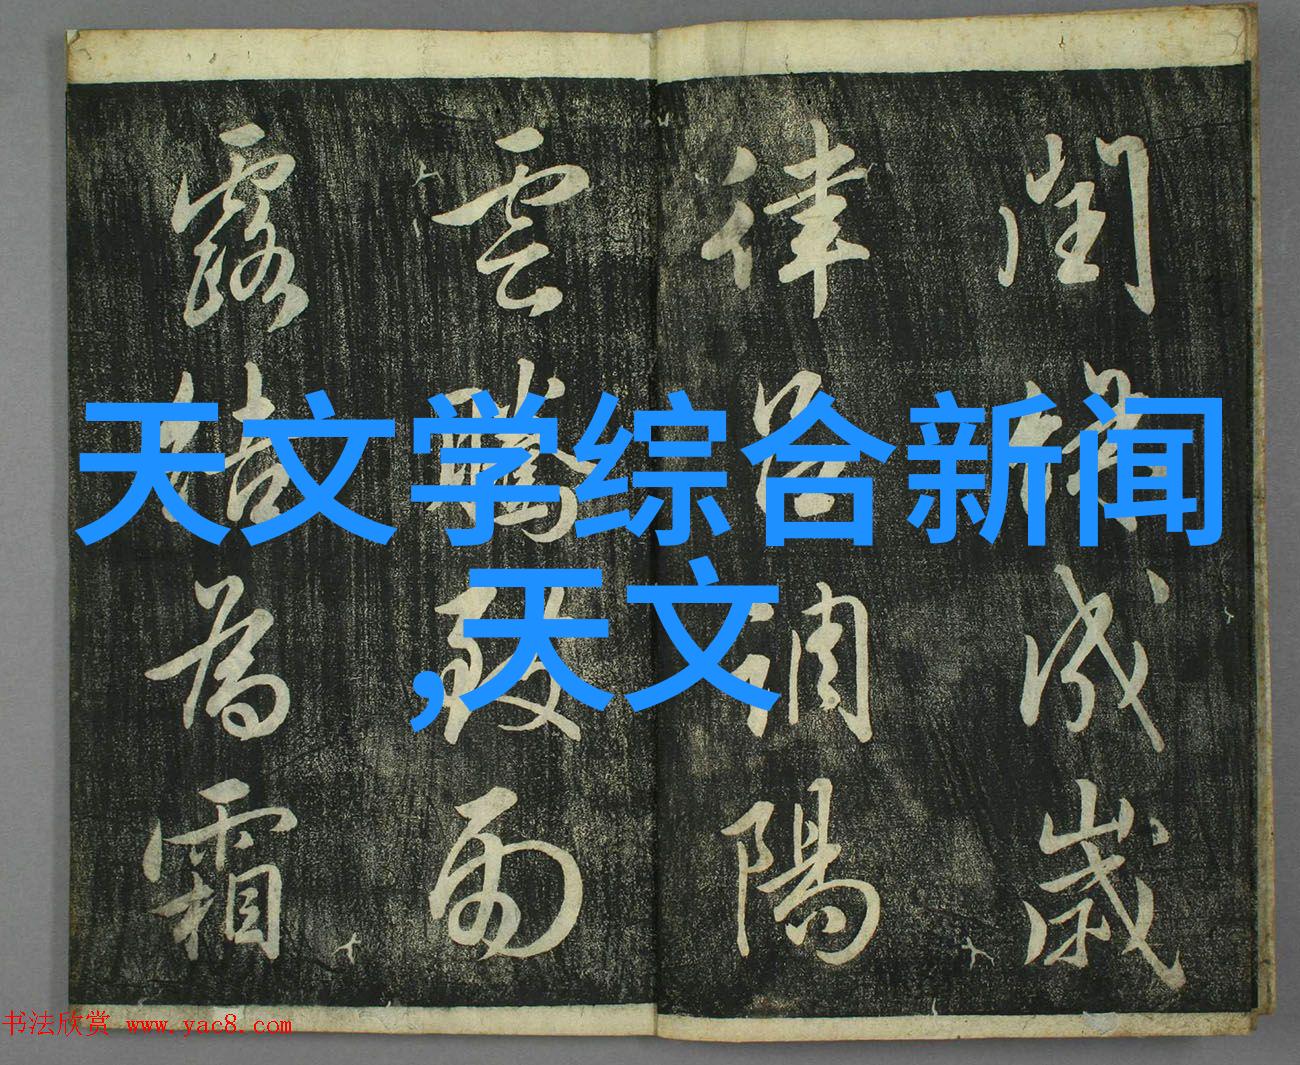 閏餘成歲
律吕調陽
雲騰致雨
露結為霜
天文学综合新闻
,天文
书法欣赏 www.yac8.com